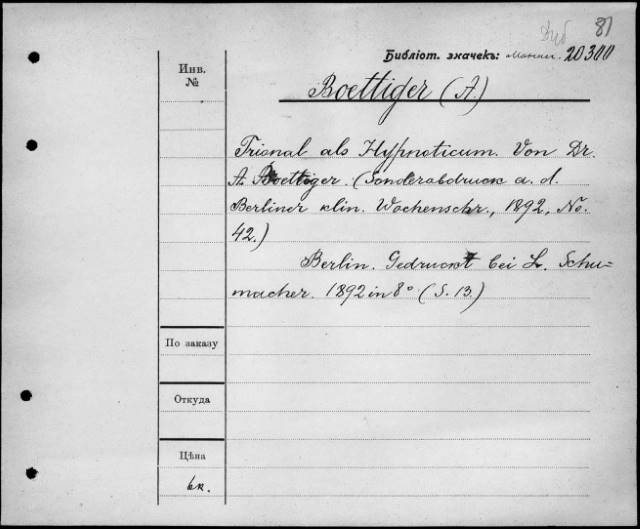 81
Библіот. значекъ: 20300
Инв.
№
Boettiger (A.)
Trional als Hypnoticum. Von Dr.
A. Boettiger. (Sonderabdruck a. d.
Berliner klin. Wochenschr., 1892, No.
42.)
Berlin. Gedruckt bei L. Schu=
macher. 1892 in 8° (S. 13.)
По заказу
Откуда
Цѣна